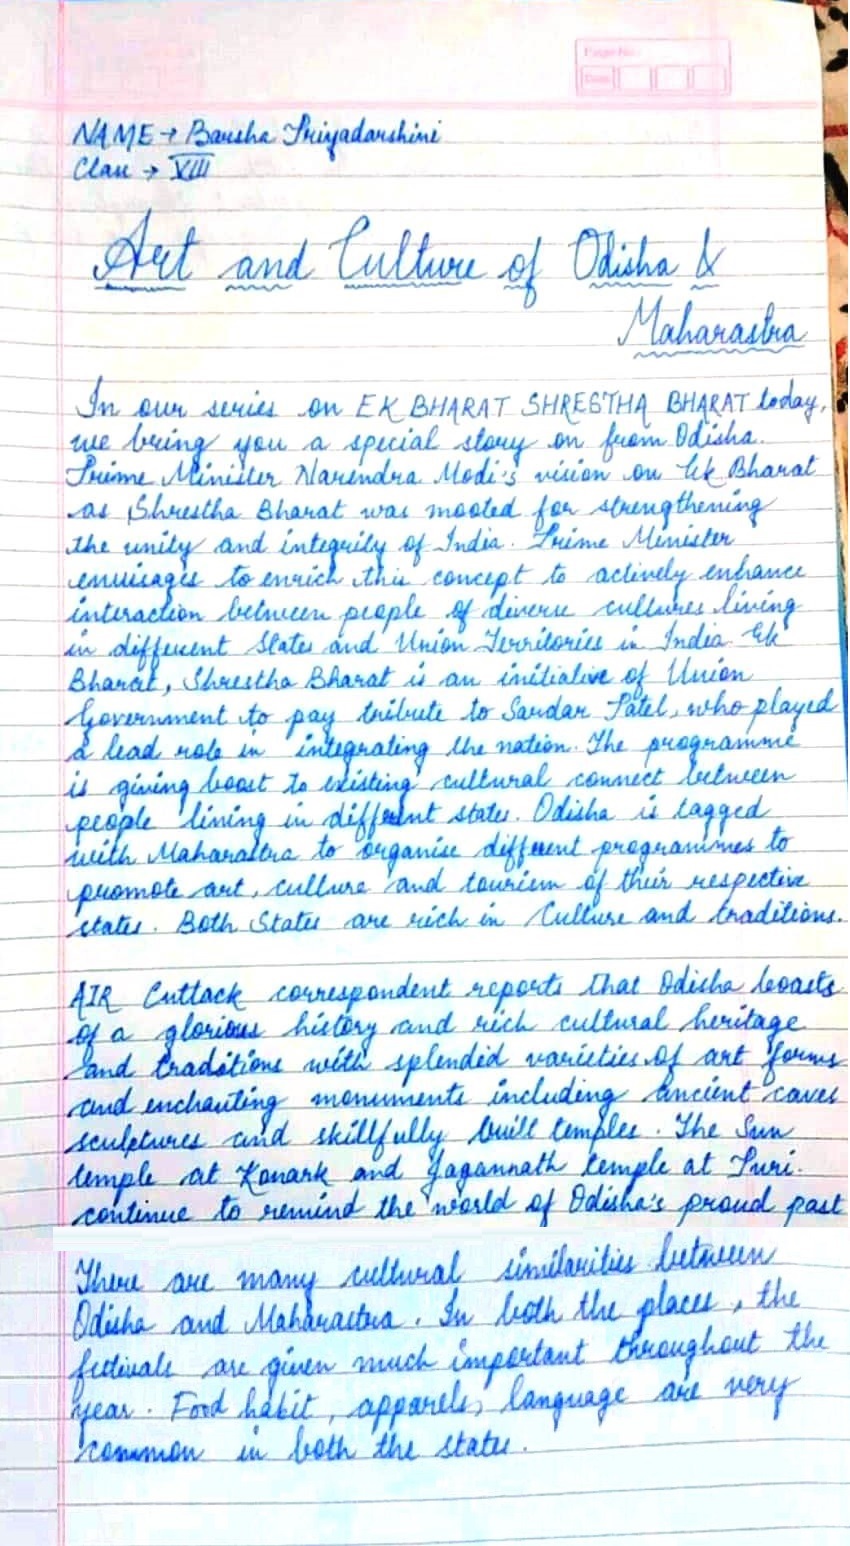 Page No.
Date
NAME → Barsha Priyadarshini
Class → VIII
Art and Culture of Odisha &
Maharastra
In our series on EK BHARAT SHRESTHA BHARAT today,
we bring you a special story on from Odisha.
Prime Minister Narendra Modi's vision on Ek Bharat
as Shrestha Bharat was mooted for strengthening
the unity and integrity of India. Prime Minister
envisages to enrich this concept to actively enhance
interaction between people of diverse cultures living
in different States and Union Territories in India Ek
Bharat, Shrestha Bharat is an initiative of Union
Government to pay tribute to Sardar Patel, who played
a lead role in integrating the nation. The programme
is giving boost to existing cultural connect between
people lining in different states. Odisha is tagged
with Maharastra to organise different programmes to
promote art, culture and tourism of their respective
states. Both States are rich in Culture and traditions.
AIR Cuttack correspondent reports that Odisha boasts
of a glorious history and rich cultural heritage
and traditions with splendid varieties of art forms
and enchanting monuments including ancient caves
sculptures and skillfully built temples. The Sun
temple at Konark and Jagannath temple at Puri.
continue to remind the world of Odisha's proud past
There are many cultural similarities between
Odisha and Maharastra. In both the places, the
festivals are given much important throughout the
year. Food habit, apparels, language are very
common in both the states.